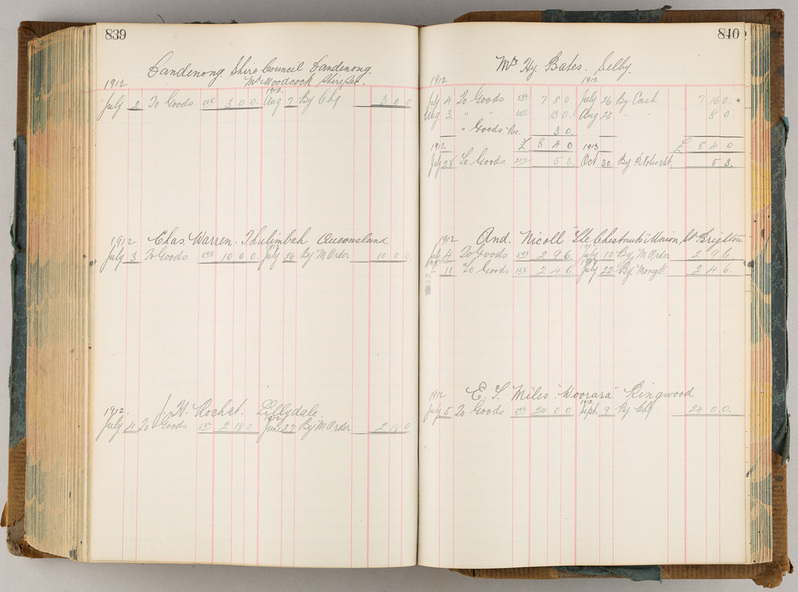 839
Dandenong Shire Council Dandenong.
Mr Woodcock Shire Sec.
1912
July 2 To Goods 3 0 0 Aug 7 By Chq 3 0 0
1912 Chas Warren. Thulimbah Queensland
July 3 To Goods 10 0 0 July 26 By M Order 10 0 0
1912. J. H. Rochst. Lillydale
July 4 To Goods 2 18 0 June 27 By M Order 2 18 0
840
Mrs Hy. Bates. Selby.
1912 1912
July 4 To Goods 7 8 0 July 26 By Cash 7 16 0
Aug 3 " " 13 0 Aug 28 " " 8 0
" Goods 3 0
1912 £ 8 4 0 1913 £ 8 4 0
July 28 To Goods 5 3 Oct 30 By 5 3
1912 And. Nicoll Ste "Chestnuts" Union St Brighton
July 4 To Goods 2 9 6 July 10 By M Order 2 9 6
" 11 To Goods 2 4 6 July 22 By 2 4 6
1912 E. S. Miles "Woorara" Ringwood
July 5 To Goods 20 0 0 Sept 9 By Chq 20 0 0